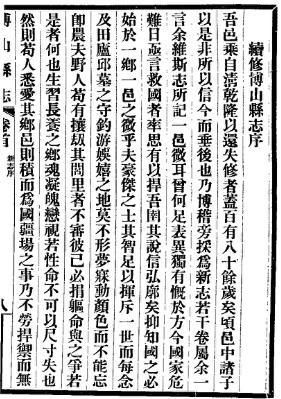 續修博山縣志序
吾邑乘自清乾隆以還失修者蓋百有八十餘歲矣頃邑中諸子
以是非所以信今而垂後也乃博稽旁採為新志若干卷屬余一
言余維斯志所記一邑微耳曾何足表異獨有慨於方今國家危
難日亟言救國者率思有以捍吾圉其說信弘廓矣抑知國之必
始於一鄉一邑之微乎夫豪傑之士其智足以揮斥一世而每念
及田廬邱墓之守釣游娛嬉之地莫不形夢寐動顏色而不能忘
卽農夫野人苟有攘刼其閭里者不審彼己必捐軀命與之爭若
是者何也生習長養之鄉魂凝魄戀視若性命不可以尺寸失也
然則苟人悉愛其鄉邑則積而為國疆場之事乃不勞捍禦而無
博山縣志
卷首
新志序
八